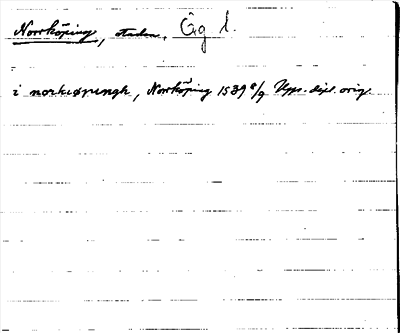 Norrköping, staden. Ög l.
i norkiøpungh, Norrköping 1539 8/9 Upps. dipl. orig.